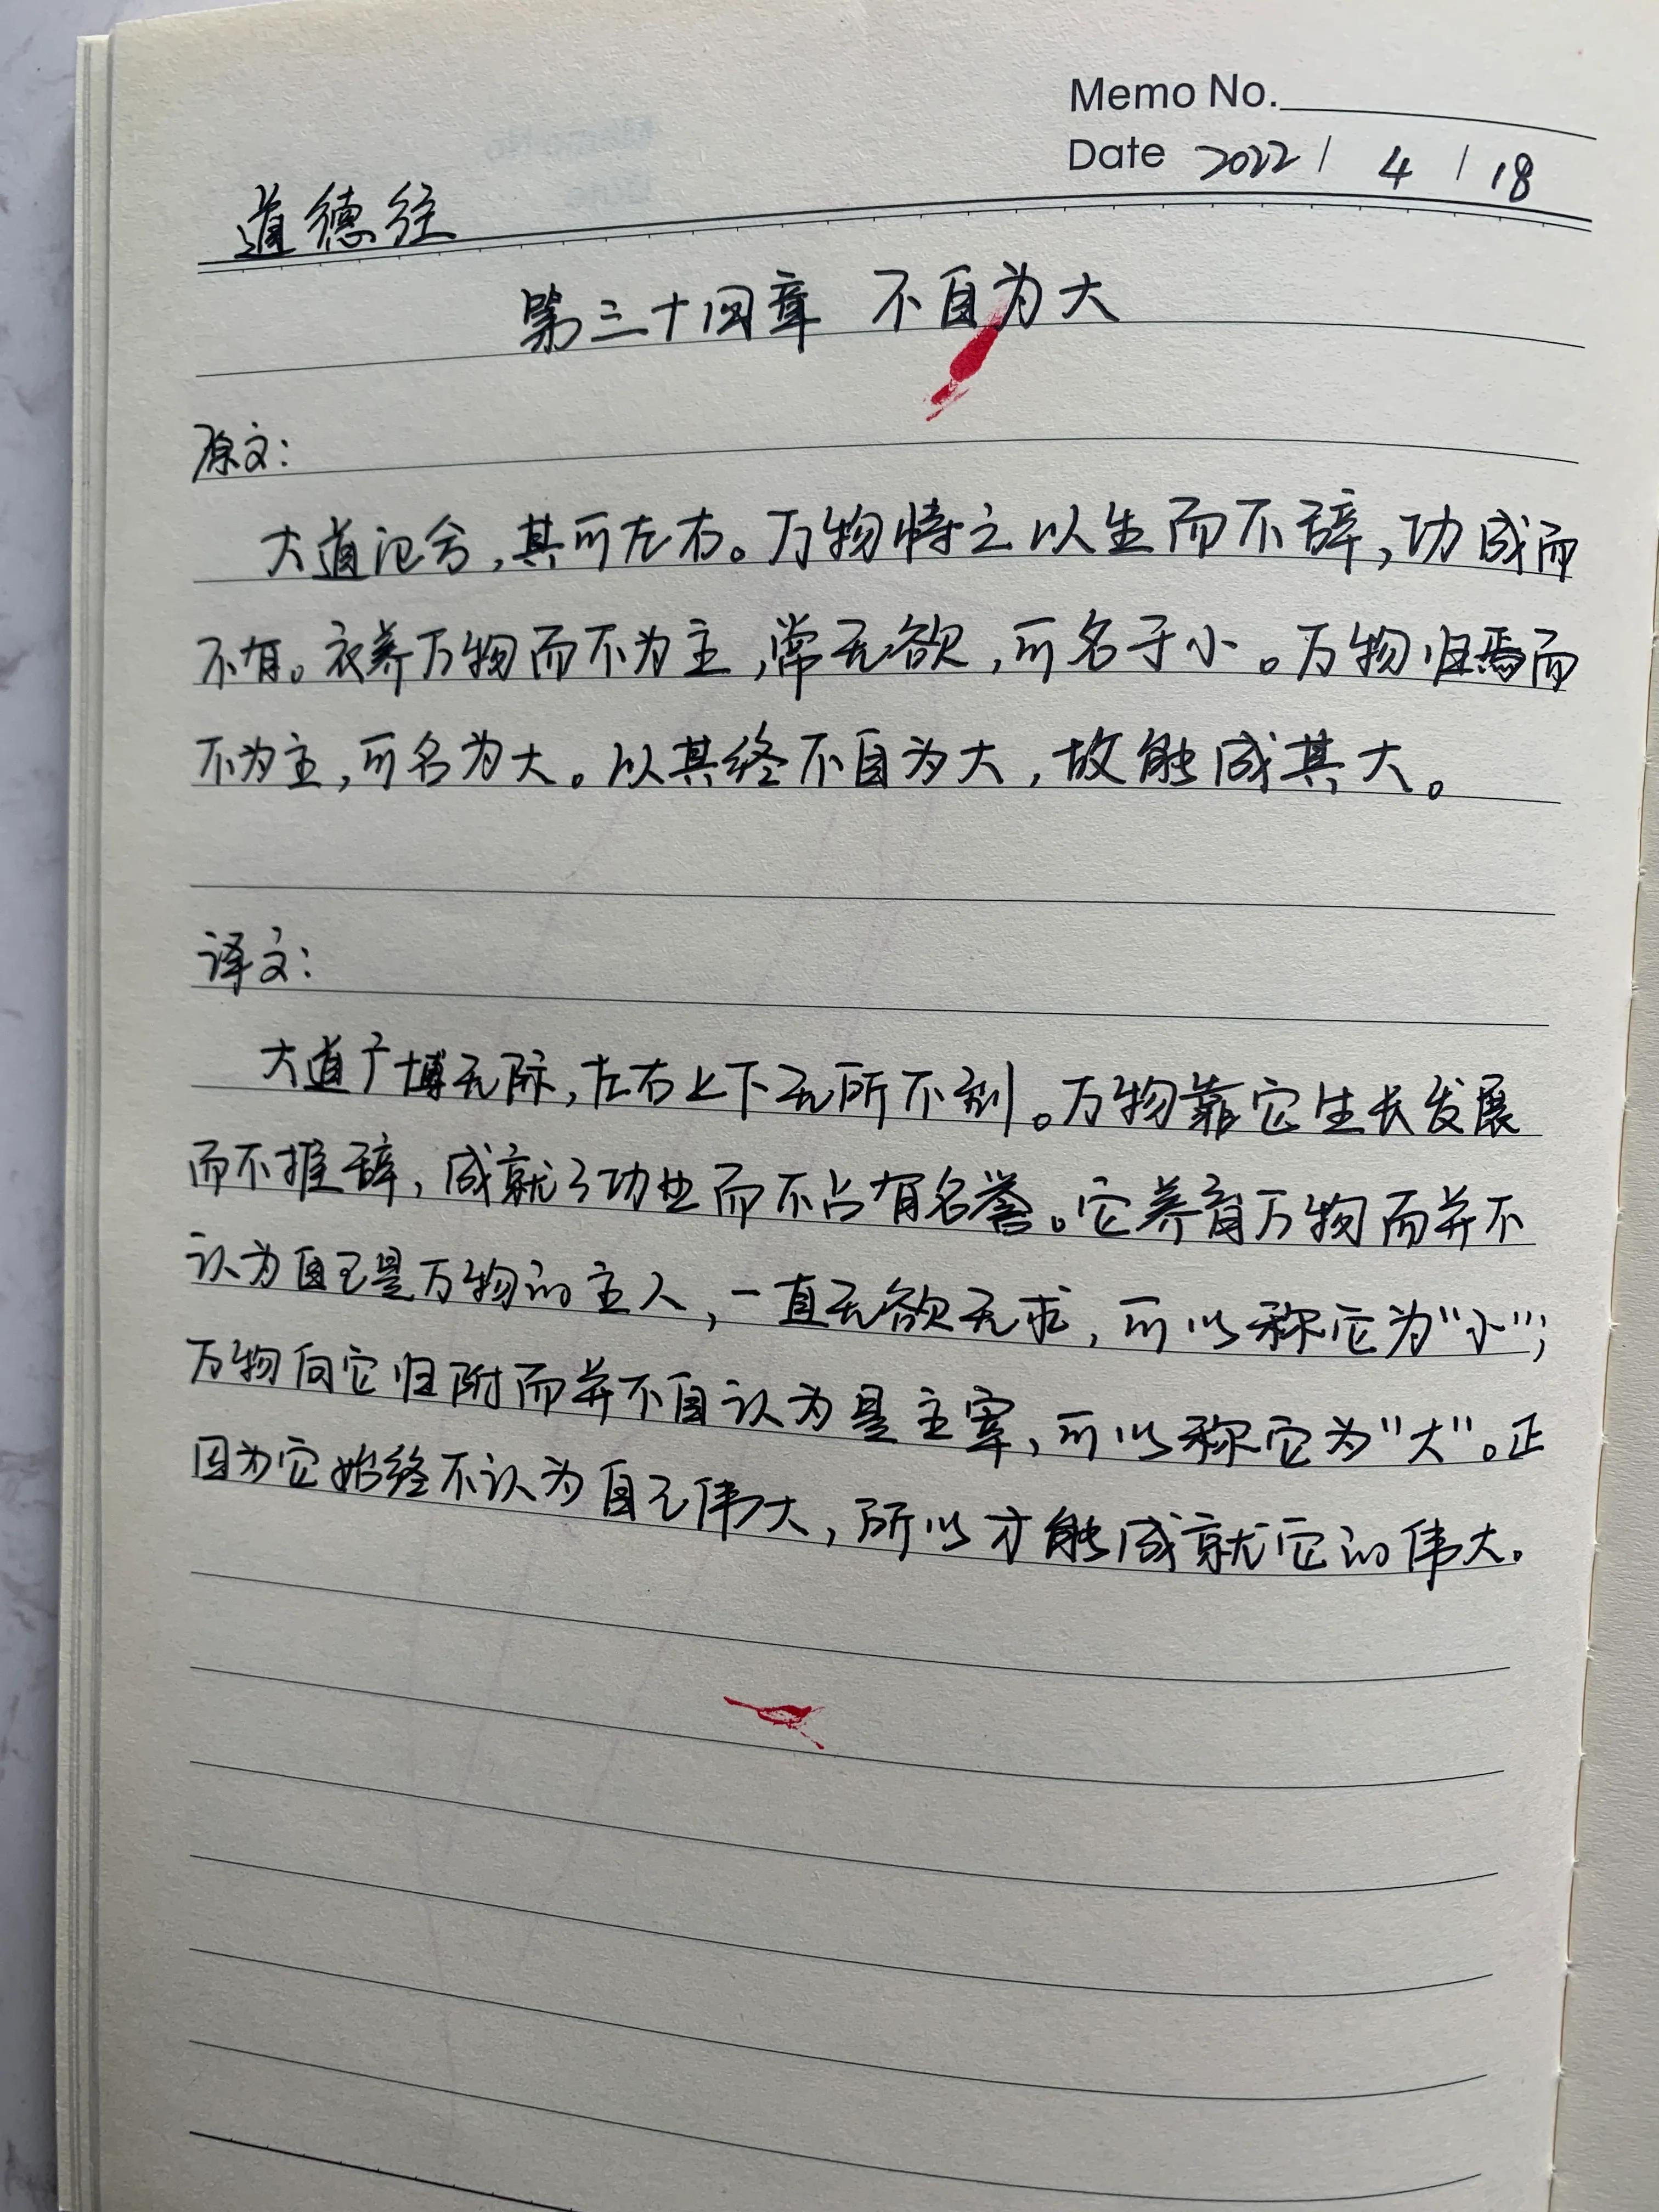 Memo No.
Date 2022 / 4 / 18
道德经
第三十四章 不自为大
原文:
大道氾兮,其可左右。万物恃之以生而不辞,功成而
不有。衣养万物而不为主,常无欲,可名于小。万物归焉而
不为主,可名为大。以其终不自为大,故能成其大。
译文:
大道广博无际,左右上下无所不到。万物靠它生长发展
而不推辞,成就了功业而不占有名誉。它养育万物而并不
认为自己是万物的主人,一直无欲无求,可以称它为“小”;
万物向它归附而并不自认为是主宰,可以称它为“大”。正
因为它始终不认为自己伟大,所以才能成就它的伟大。